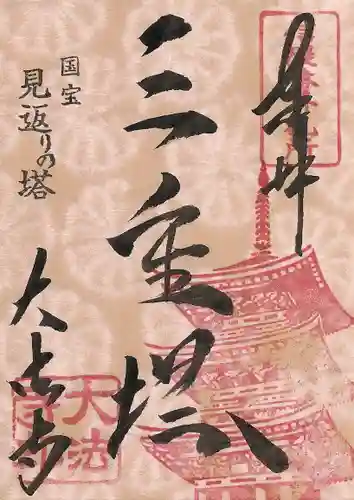 奉拝
三重塔
国宝
見返りの塔
大法寺
大法